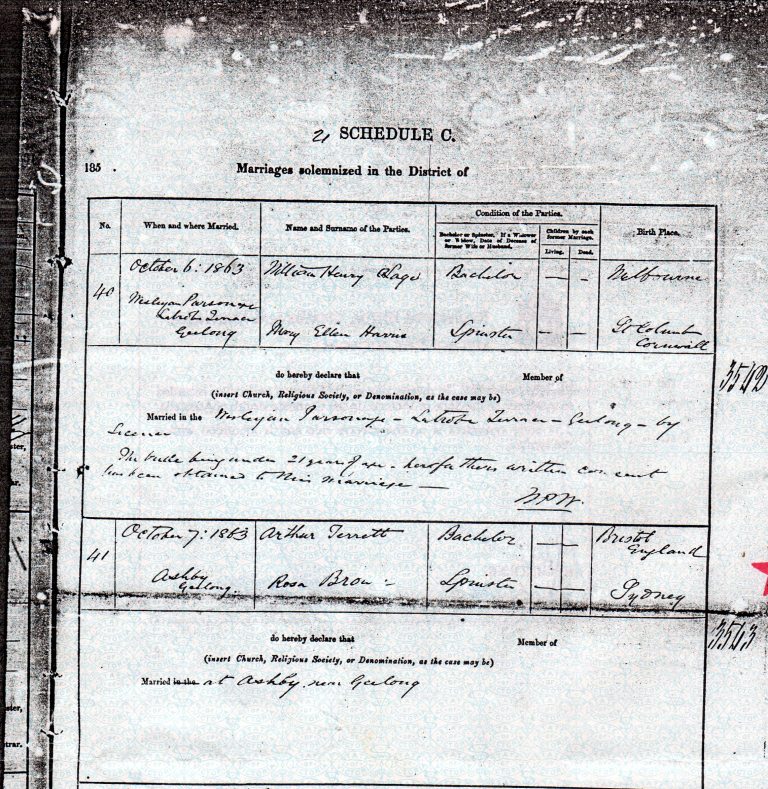 2 SCHEDULE C.
185 . Marriages solemnized in the District of
Condition of the Parties.
No. When and where Married. Name and Surname of the Parties. Bachelor or Spinster. If a Widower or Widow, Date of Decease of former Wife or Husband. Children by each former Marriage. Birth Place.
Living. Dead.
October 6: 1863 William Henry Bachelor — – Melbourne
40 Wesleyan Parsonage
Latrobe Terrace
Geelong Mary Ellen Harris Spinster — – St Columb
Cornwall
3542
do hereby declare that Member of
(insert Church, Religious Society, or Denomination, as the case may be)
Married in the Wesleyan Parsonage – Latrobe Terrace – Geelong – by
License
The bride being under 21 years of age – her fathers written consent
has been obtained to this marriage —
October 7: 1863 Arthur Terrett Bachelor — Bristol
England
41 Ashby
Geelong. Rosa Brow Spinster — Sydney
3543
do hereby declare that Member of
(insert Church, Religious Society, or Denomination, as the case may be)
Married in the at Ashby near Geelong
ster,
trar.